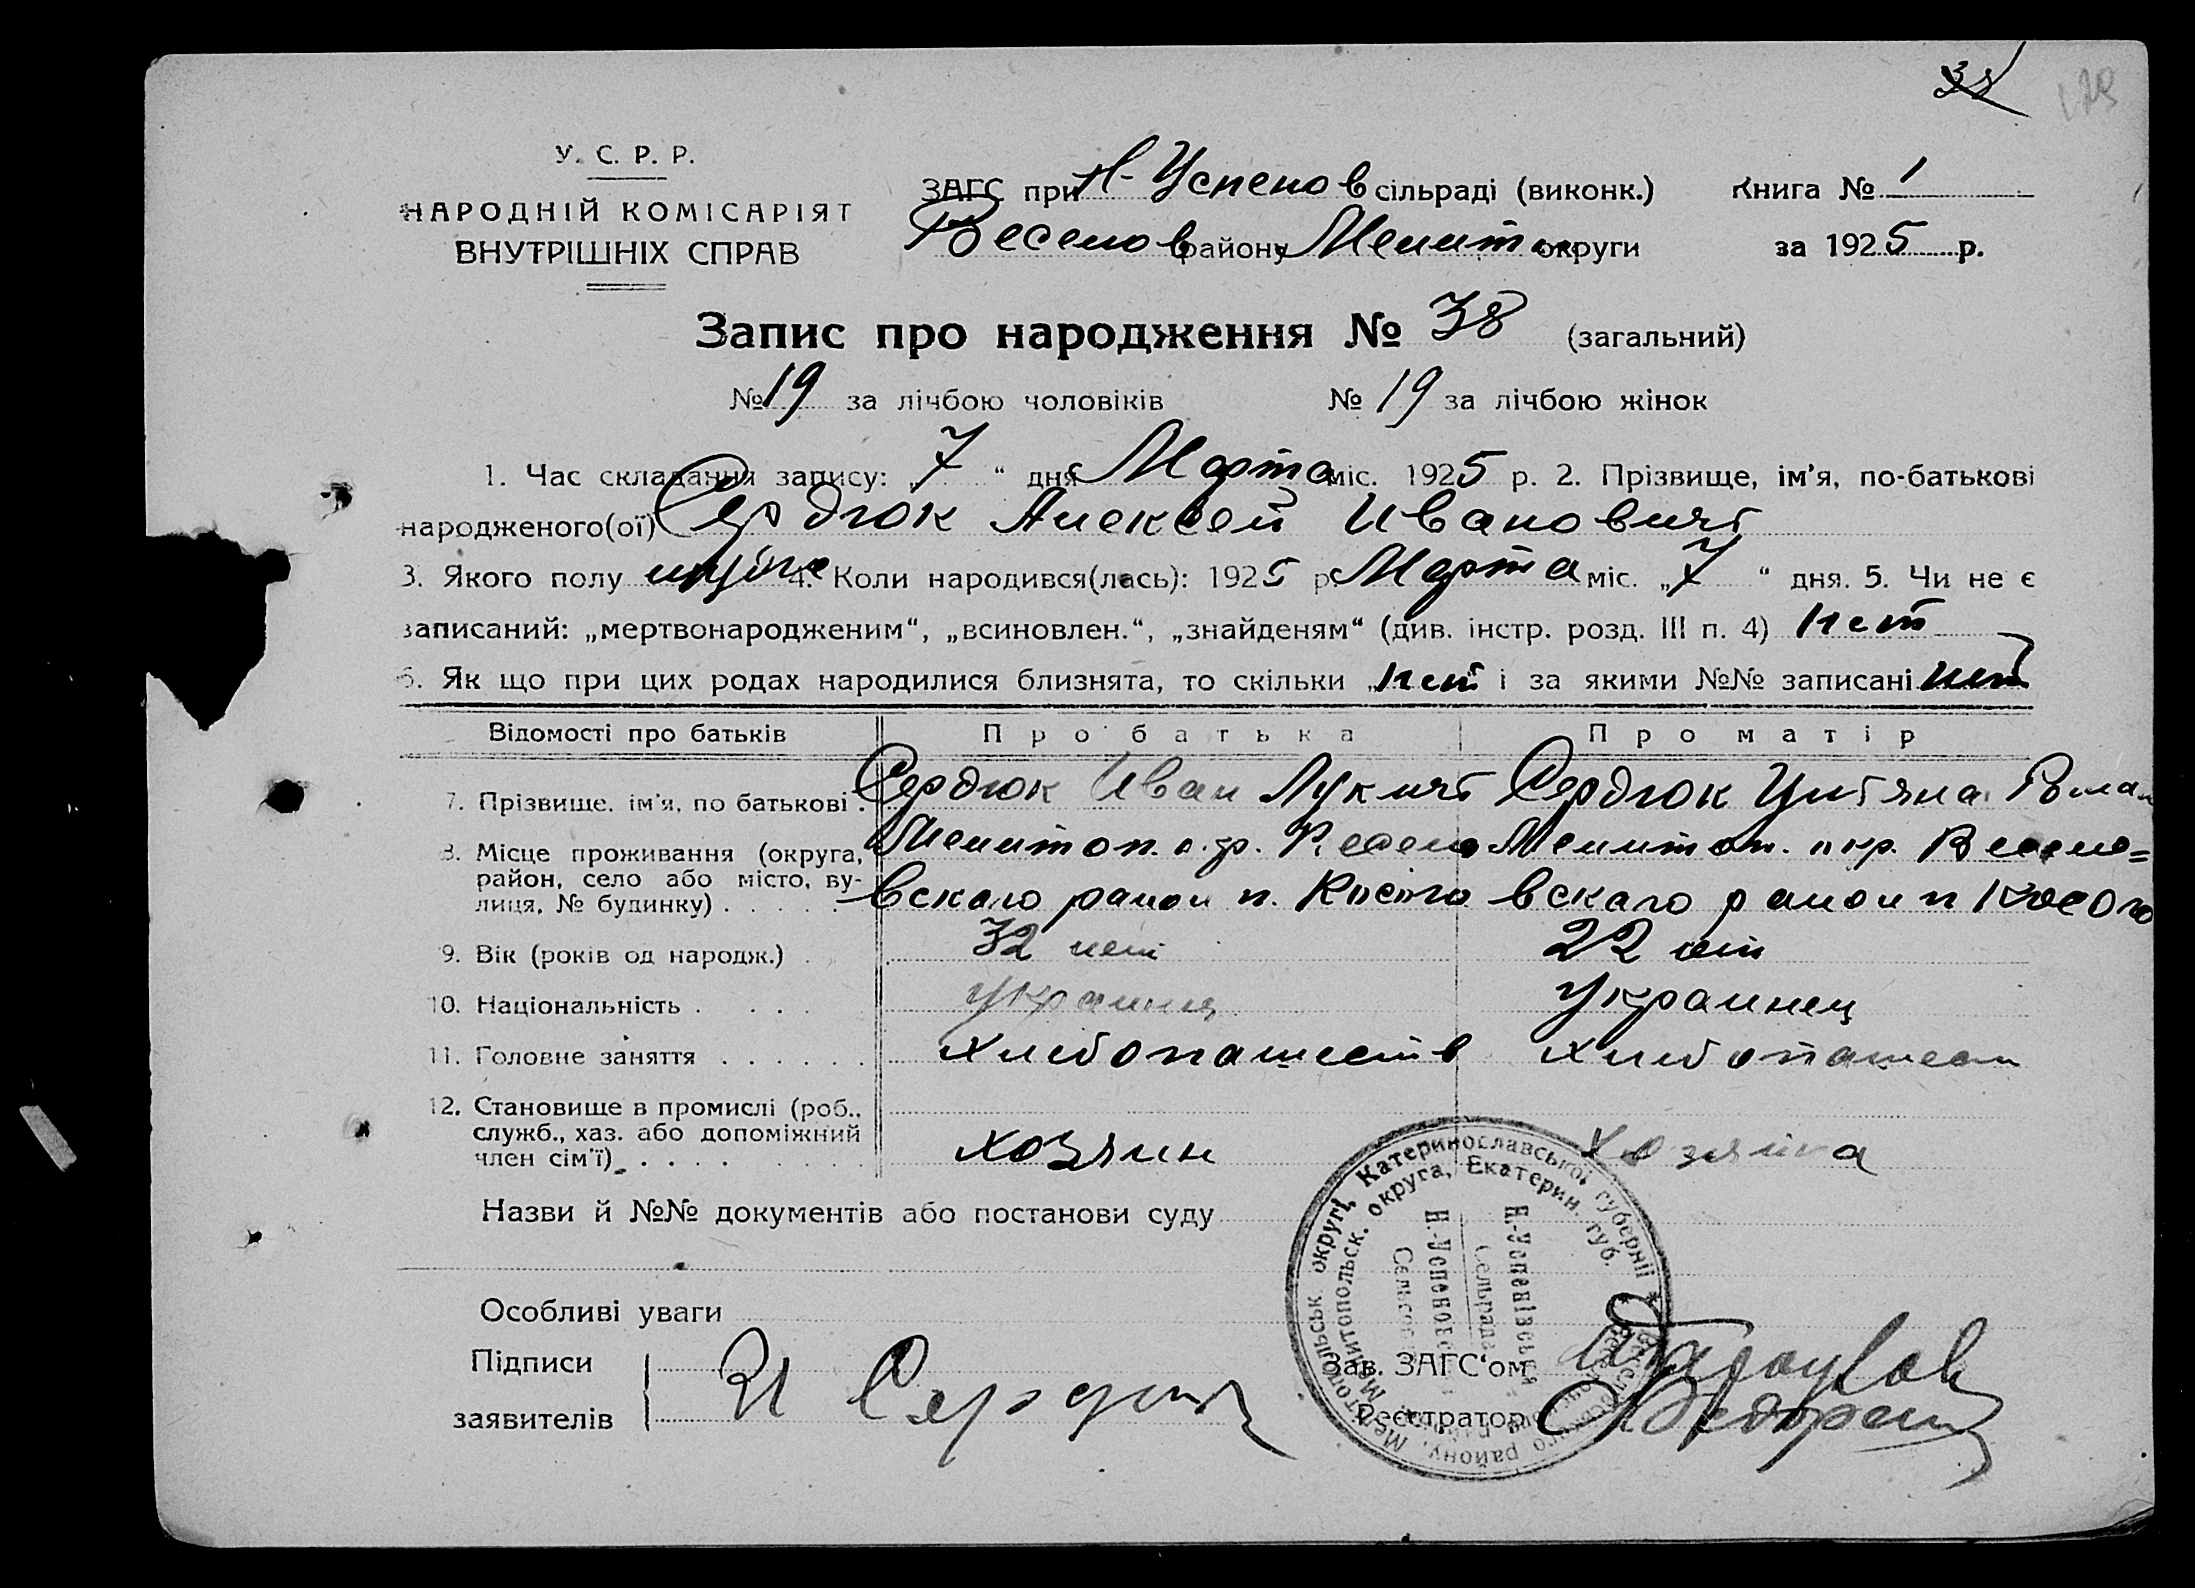 38
У. С. Р. Р.
НАРОДНІЙ КОМІСАРІЯТ
ВНУТРІШНІХ СПРАВ
ЗАГС при Н-Успенов сільраді (виконк.) Книга № 1
Веселов району Мелит округи за 1925 р.
Запис про народження № 38 (загальний)
№ 19 за лічбою чоловіків № 19 за лічбою жінок
1. Час складання запису: „7“ дня Марта міс. 1925 р. 2. Прізвище, ім'я, по-батькові
народженого(ої) Сердюк Алексей Иванович
3. Якого полу 4. Коли народився(лась): 1925 р. Марта міс. „7“ дня. 5. Чи не є
записаний: „мертвонародженим“, „всиновлен.“, „знайденям“ (див. інстр. розд. III п. 4) нет
6. Як що при цих родах народилися близнята, то скільки „нет і за якими №№ записані нет
Відомості про батьків Про батька Про матір
7. Прізвище, ім'я, по батькові . Сердюк Иван Лукич Сердюк
8. Місце проживання (округа, Мелитоп. окр. Весело Мелитоп. окр. Весело=
район, село або місто, ву-
лиця, № будинку) . . . . . вскаго район вскаго район
9. Вік (років од народж.) . 32 лет 22 лет
10. Національність . . . . украинец Украинец
11. Головне заняття . . . . . . хлибопашеств хлибопашест
12. Становище в промислі (роб.,
служб., хаз. або допоміжний
член сім'ї) . . . . . . . хозяин хозяйка
Назви й №№ документів або постанови суду
Особливі уваги
Підписи
заявителів И Сердюк
Зав. ЗАГС'ом
Реєстратор
Мелітопольськ округі, Катеринославської губернії
Мелитопольск. округа, Екатерин. губ.
Н.-Успенівська
Сельрада